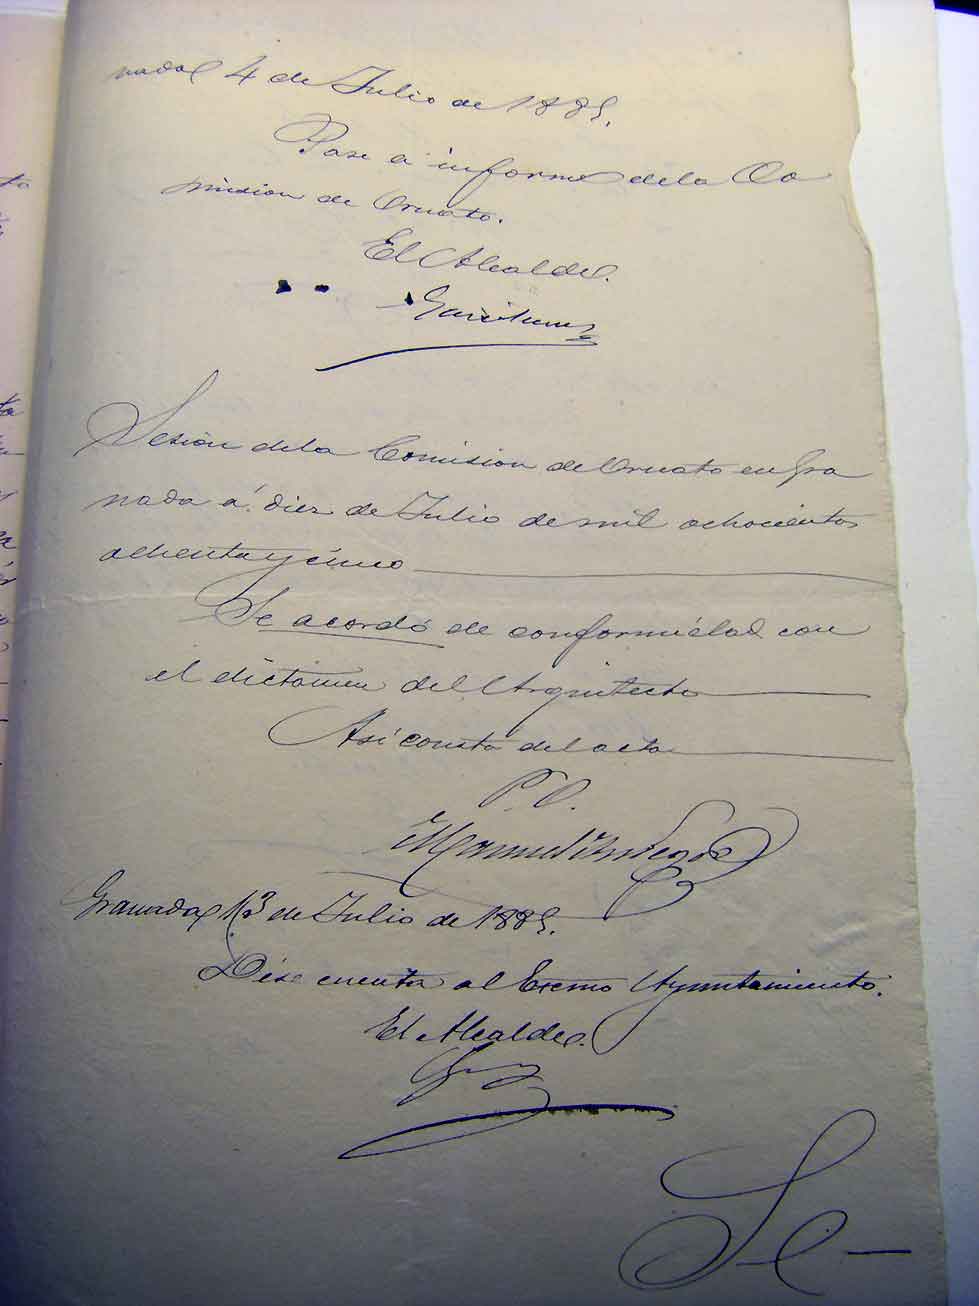 nada 4 de Julio de 1885.
Pase a informe de la Co
mision de Ornato.
El Alcalde.
Sesión de la Comision de Ornato en Gra
nada á diez de Julio de mil ochocientos
ochenta y cinco
Se acordó de conformidad con
el dictámen del Arquitecto
Asi consta del acta
P. O.
Manuel
Granada 13 de Julio de 1885.
Dése cuenta al Excmo Ayuntamiento.
El Alcalde.
Se